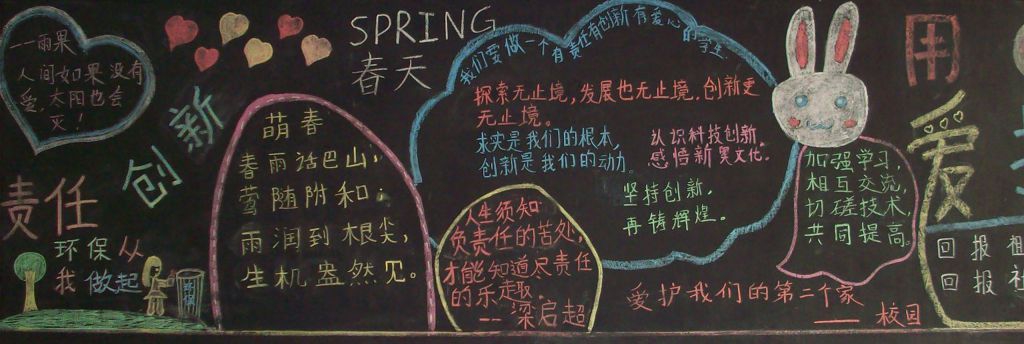 ——雨果
人间如果没有
爱,太阳也会
灭!
创新
责任
环保从
我做起
环保
SPRING
春天
萌春
春雨话巴山,
莺随附和;
雨润到根尖,
生机盎然见。
我们要做一个有责任有创新有爱心的学生
探索无止境,发展也无止境,创新更
无止境。
求实是我们的根本,
创新是我们的动力。
认识科技创新,
感悟新奥文化。
坚持创新,
再铸辉煌。
人生须知
负责任的苦处,
才能知道尽责任
的乐趣。
--梁启超
加强学习,
相互交流,
切磋技术,
共同提高。
爱护我们的第二个家
——校园
用
爱
回报祖
回报社